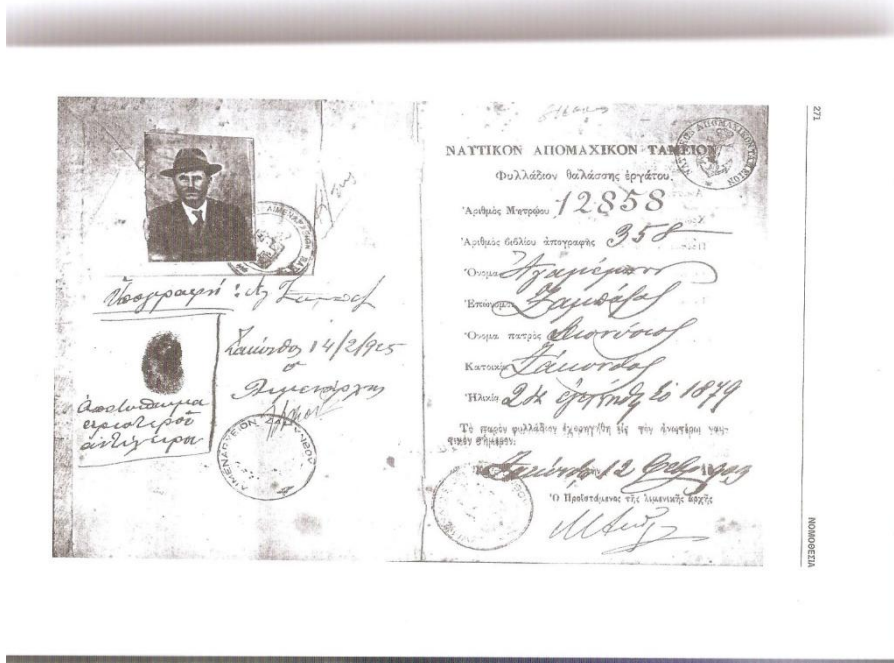 Ὑπογραφή : Αγ
Ζάκυνθος 14/2/925
ὁ
Λιμενάρχης
ἀποτύπωμα
αριστεροῦ
ἀντίχειρος
ΛΙΜΕΝΑΡΧΕΙΟΝ
ΝΑΥΤΙΚΟΝ ΑΠΟΜΑΧΙΚΟΝ ΤΑΜΕΙΟΝ
Φυλλάδιον θαλάσσης ἐργάτου
Ἀριθμὸς Μητρῴου 12858
Ἀριθμὸς βιβλίου ἀπογραφῆς 358
Ὄνομα Ἀγαμέμνων
Ἐπώνυμον
Ὄνομα πατρὸς Διονύσιος
Κατοικία Ζάκυνθος
Ἡλικία ἐγεννήθη τὸ 1879
Τὸ παρὸν φυλλάδιον ἐχορηγήθη εἰς τὸν ἀνωτέρω ναυ-
τικὸν σήμερον.
Ζακύνθῳ 12
Ὁ Προϊστάμενος τῆς λιμενικῆς ἀρχῆς
271
ΝΟΜΟΘΕΣΙΑ